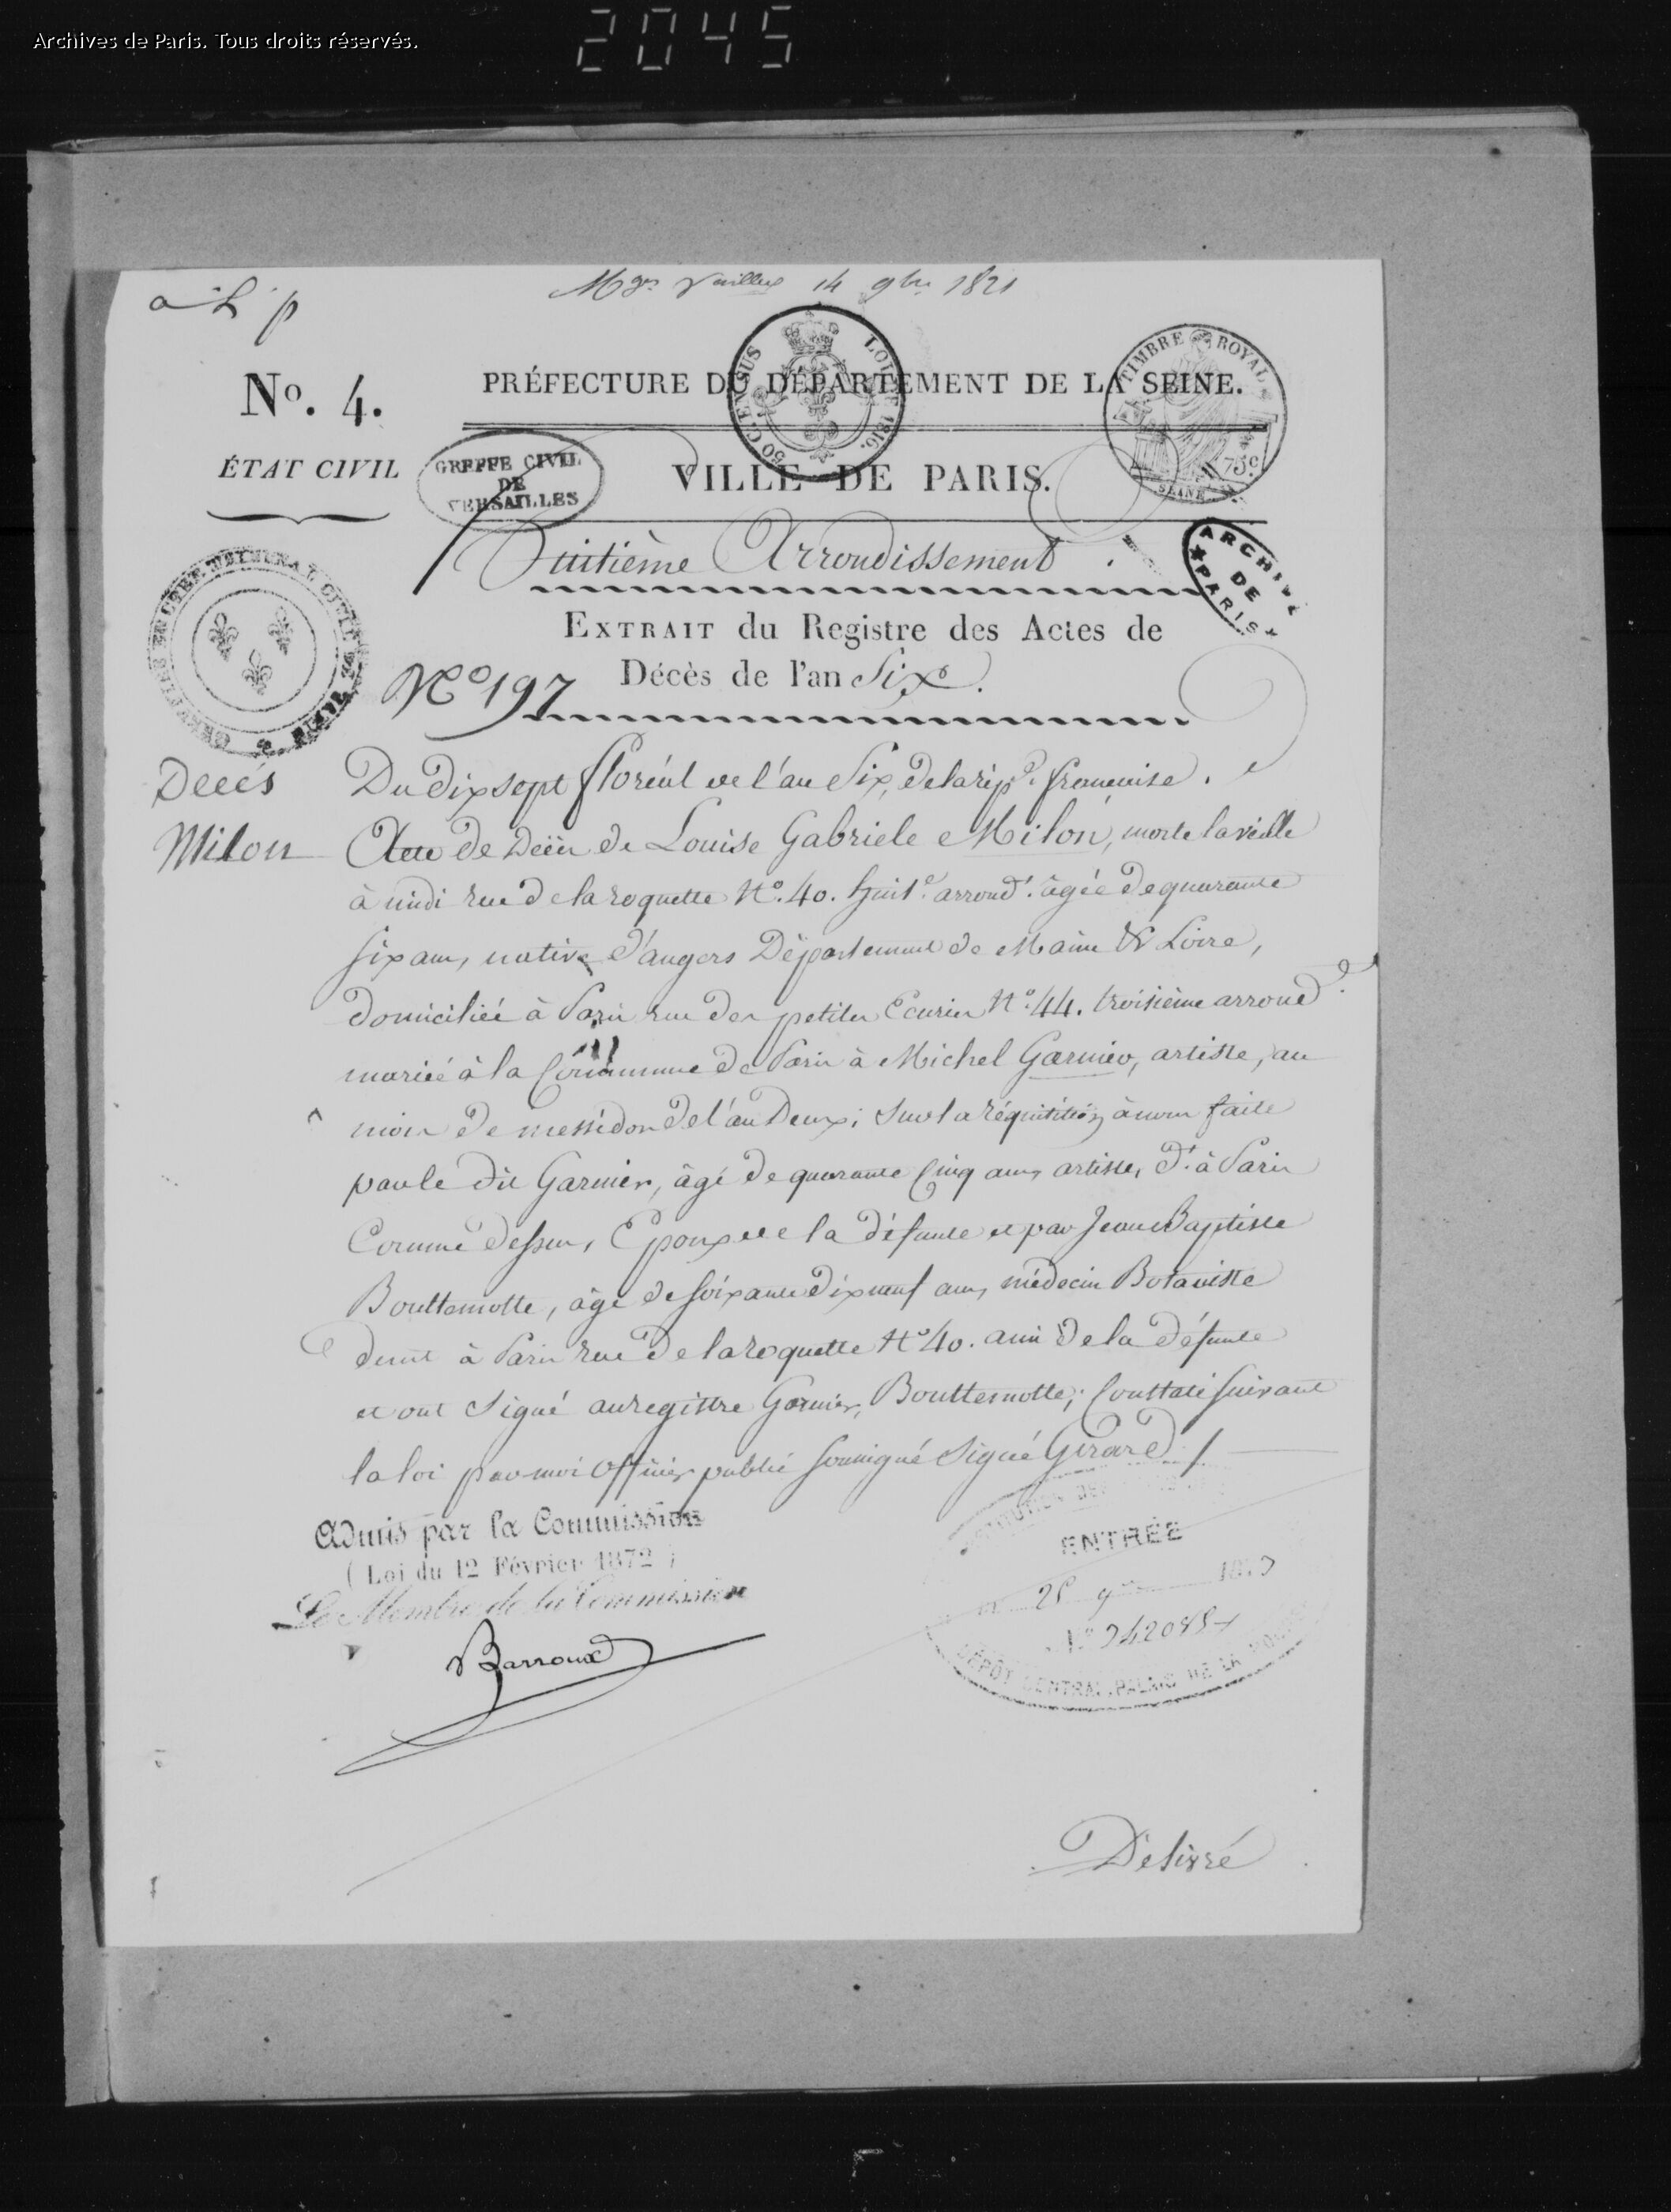 Archives de Paris. Tous droits réservés.
2045
14 9bre 1821
No. 4.
PRÉFECTURE DU DÉPARTEMENT DE LA SEINE.
50 C. EN SUS
LOI DE 1816.
TIMBRE ROYAL
75c
SEINE
ÉTAT CIVIL
GREFFE CIVIL
DE
VERSAILLES
VILLE DE PARIS.
Huitième Arrondissement
ARCHIVES
DE
PARIS
EXTRAIT du Registre des Actes de
Décès de l'an Six.
No 197
Décès
Milon
Du dix sept floréal de l'an Six, de la rép.e française.
Acte de Décès de Louise Gabriele Milon, morte la veille
à midi rue de la roquette No. 40. huit.e arrond.t âgée de quarante
six ans, native d'angers Département de Maine & Loire,
domiciliée à Paris rue des petites Ecuries No. 44. troisième arrond.t
mariée à la Commune de Paris à Michel Garnier, artiste, au
mois de messidor de l'an Deux; Sur la réquisition à nous faite
par le dit Garnier, âgé de quarante Cinq ans, artiste, dt. à Paris
Comme dessus, Epoux de la défunte et par Jean Baptiste
Bouttemotte, âgé de soixante dix neuf ans, médecin Botaniste
demt à Paris rue de la roquette No 40. ami de la défunte
et ont signé au registre Garnier, Bouttemotte; Constaté suivant
la loi par moi officier public soussigné Signé Girard
Admis par la Commission
(Loi du 12 Février 1872)
Le Membre de la Commission
Barroux
ENTRÉE
DÉPÔT CENTRAL, PALAIS DE LA
Délivré